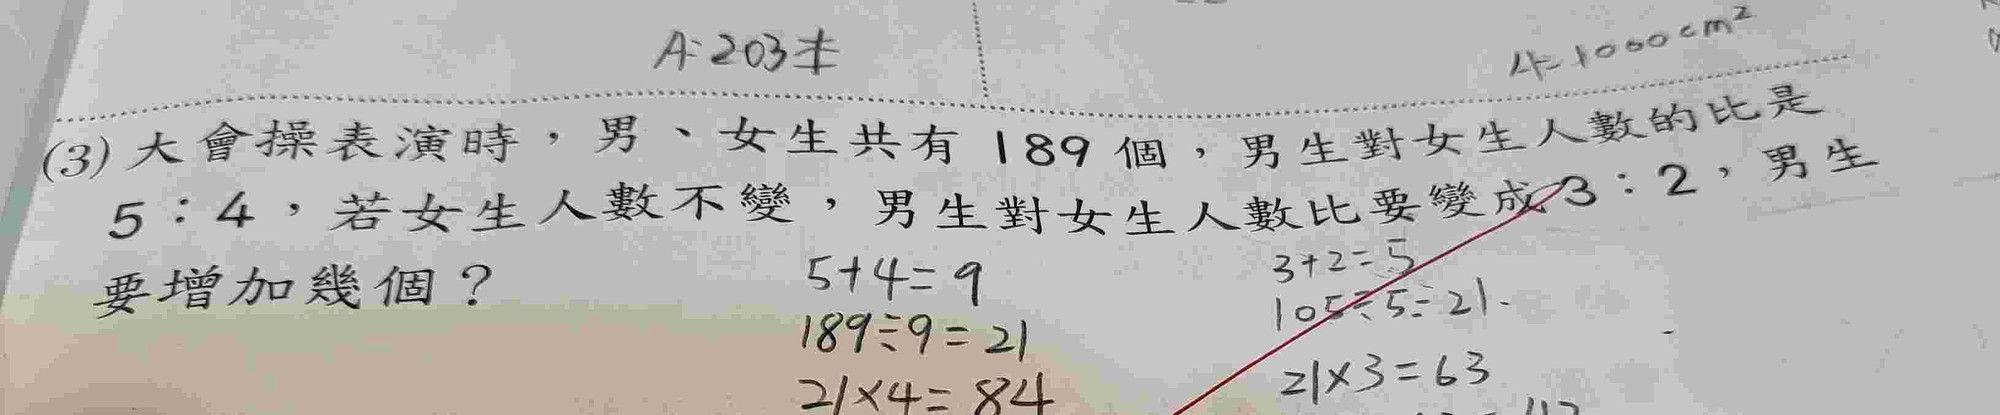 A:203本
A=1000cm²
(3)大會操表演時，男、女生共有189個，男生對女生人數的比是
5：4，若女生人數不變，男生對女生人數比要變成3：2，男生
要增加幾個？
5+4=9
189÷9=21
21×4=84
3+2=5
105÷5=21.
21×3=63